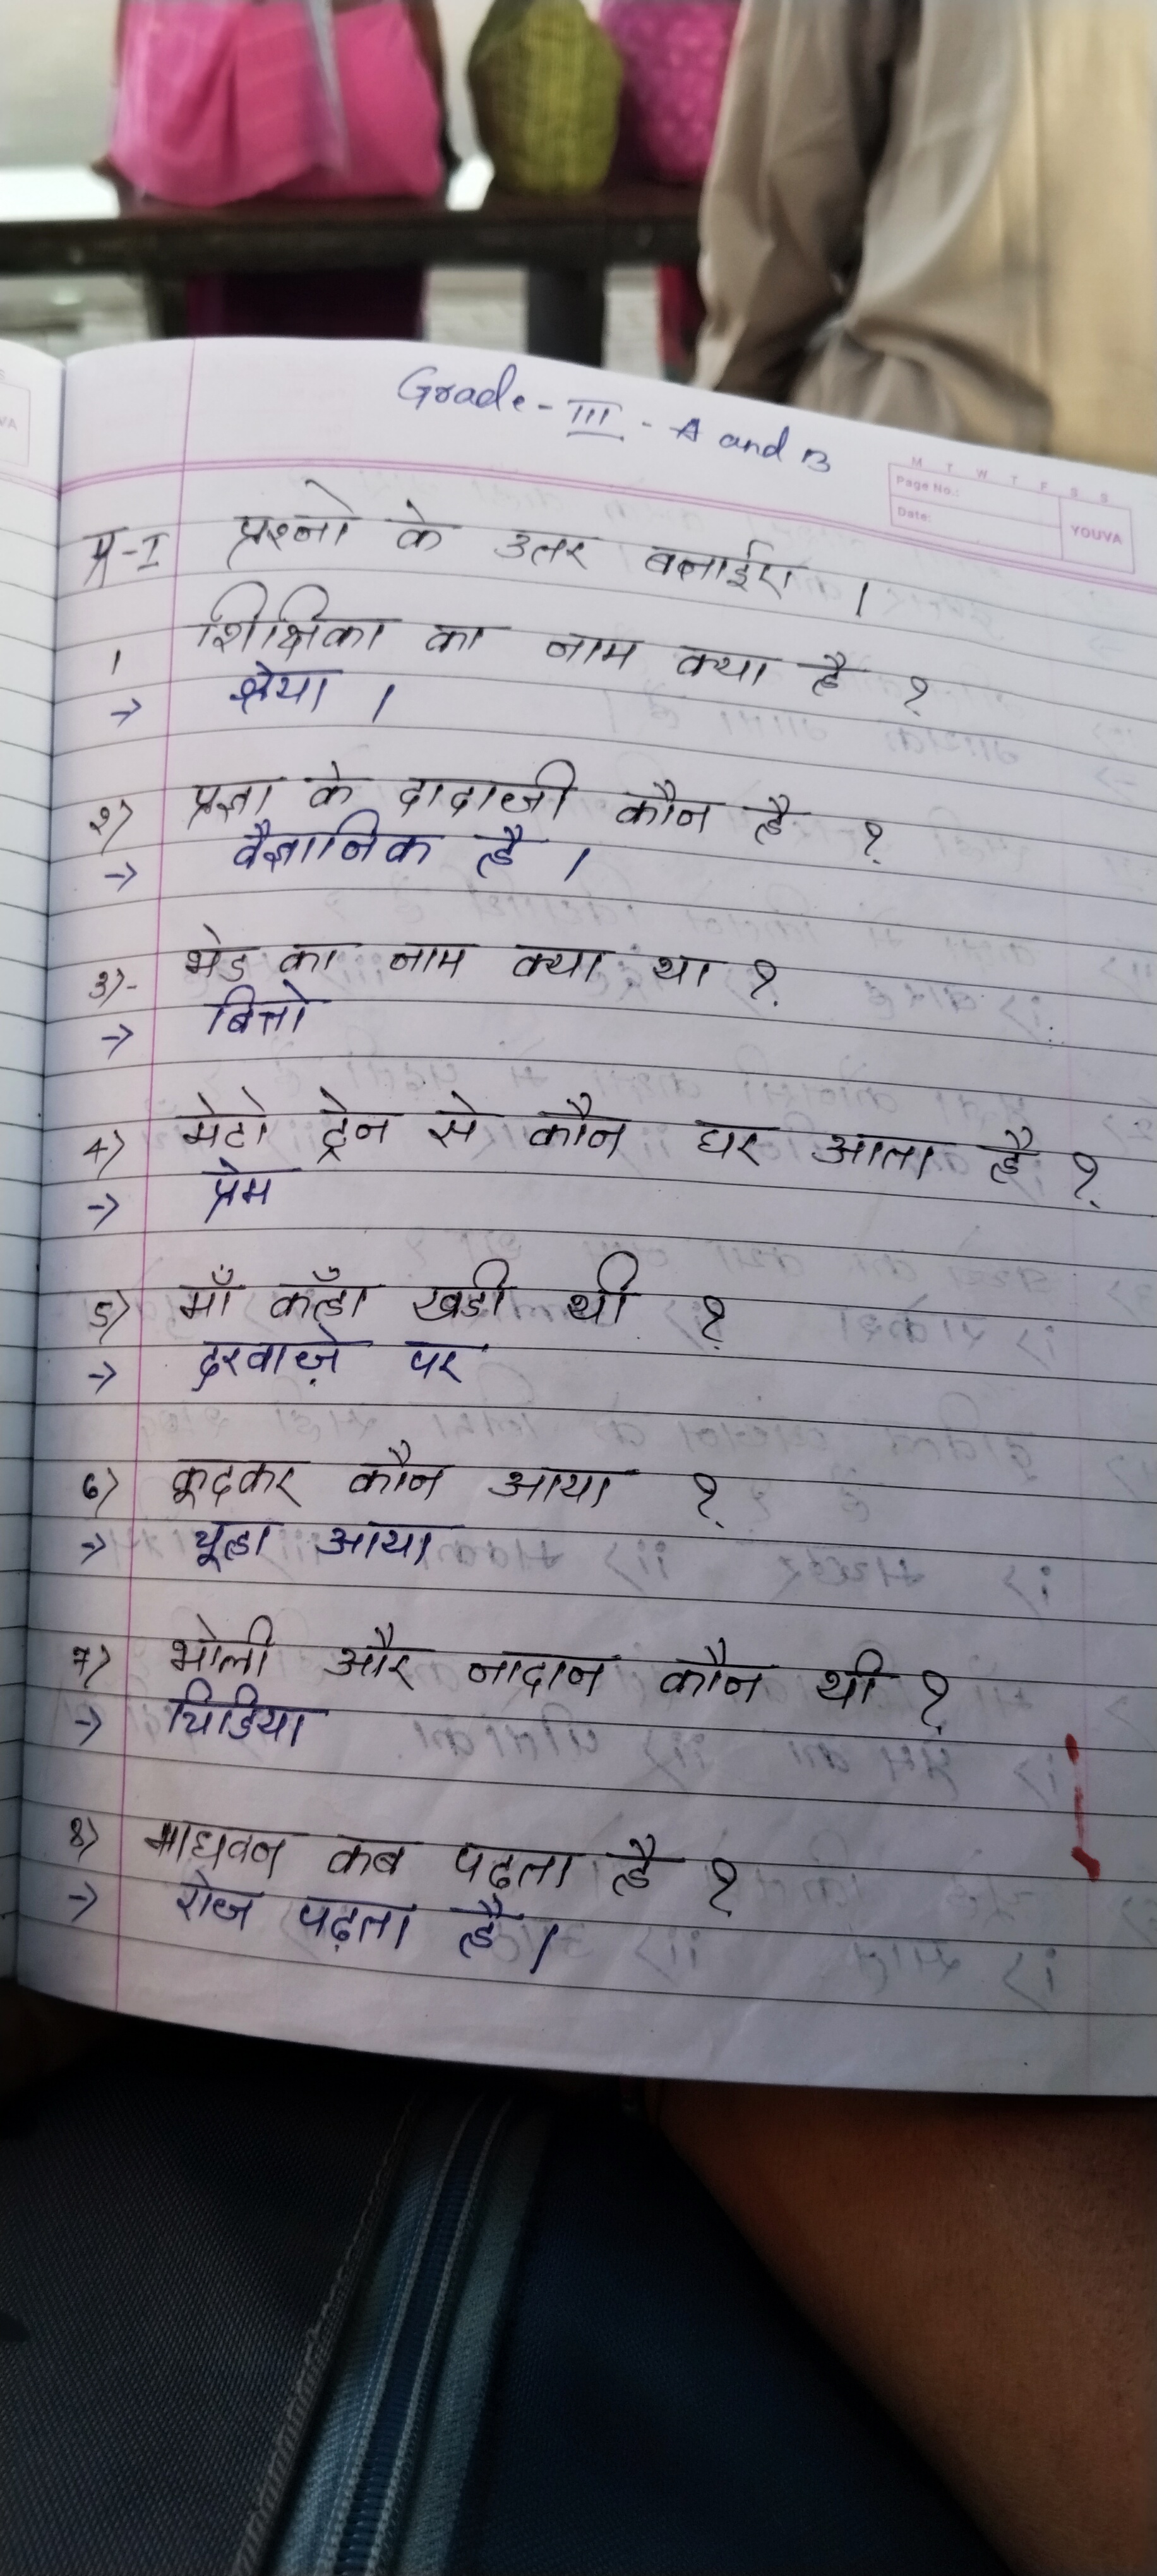 Grade - III - A and B
M T W T F S S
Page No.:
Date:
YOUVA
प्र-I प्रश्नो के उतर बताईए ।
1 शिक्षिका का नाम क्या है ?
→ श्रेया ।
2) प्रज्ञा के दादाजी कौन है ?
→ वैज्ञानिक है ।
3)- भेड का नाम क्या था ?
→ बित्तो
4) मेटो ट्रेन से कौन घर आता है ?
→ प्रेम
5) माँ कहाँ खडी थी ?
→ दरवाज़े पर
6) कूदकर कौन आया ?
→ चूहा आया
7) भोली और नादान कौन थी ?
→ चिडिया
8) माधवन कब पढता है ?
→ रोज पढ़ता है ।